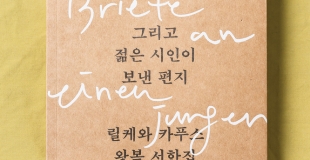 Briefe
그리고
an
젊은 시인이
보낸 편지
einen
jungen
릴케와 카푸스
왕복 서한집